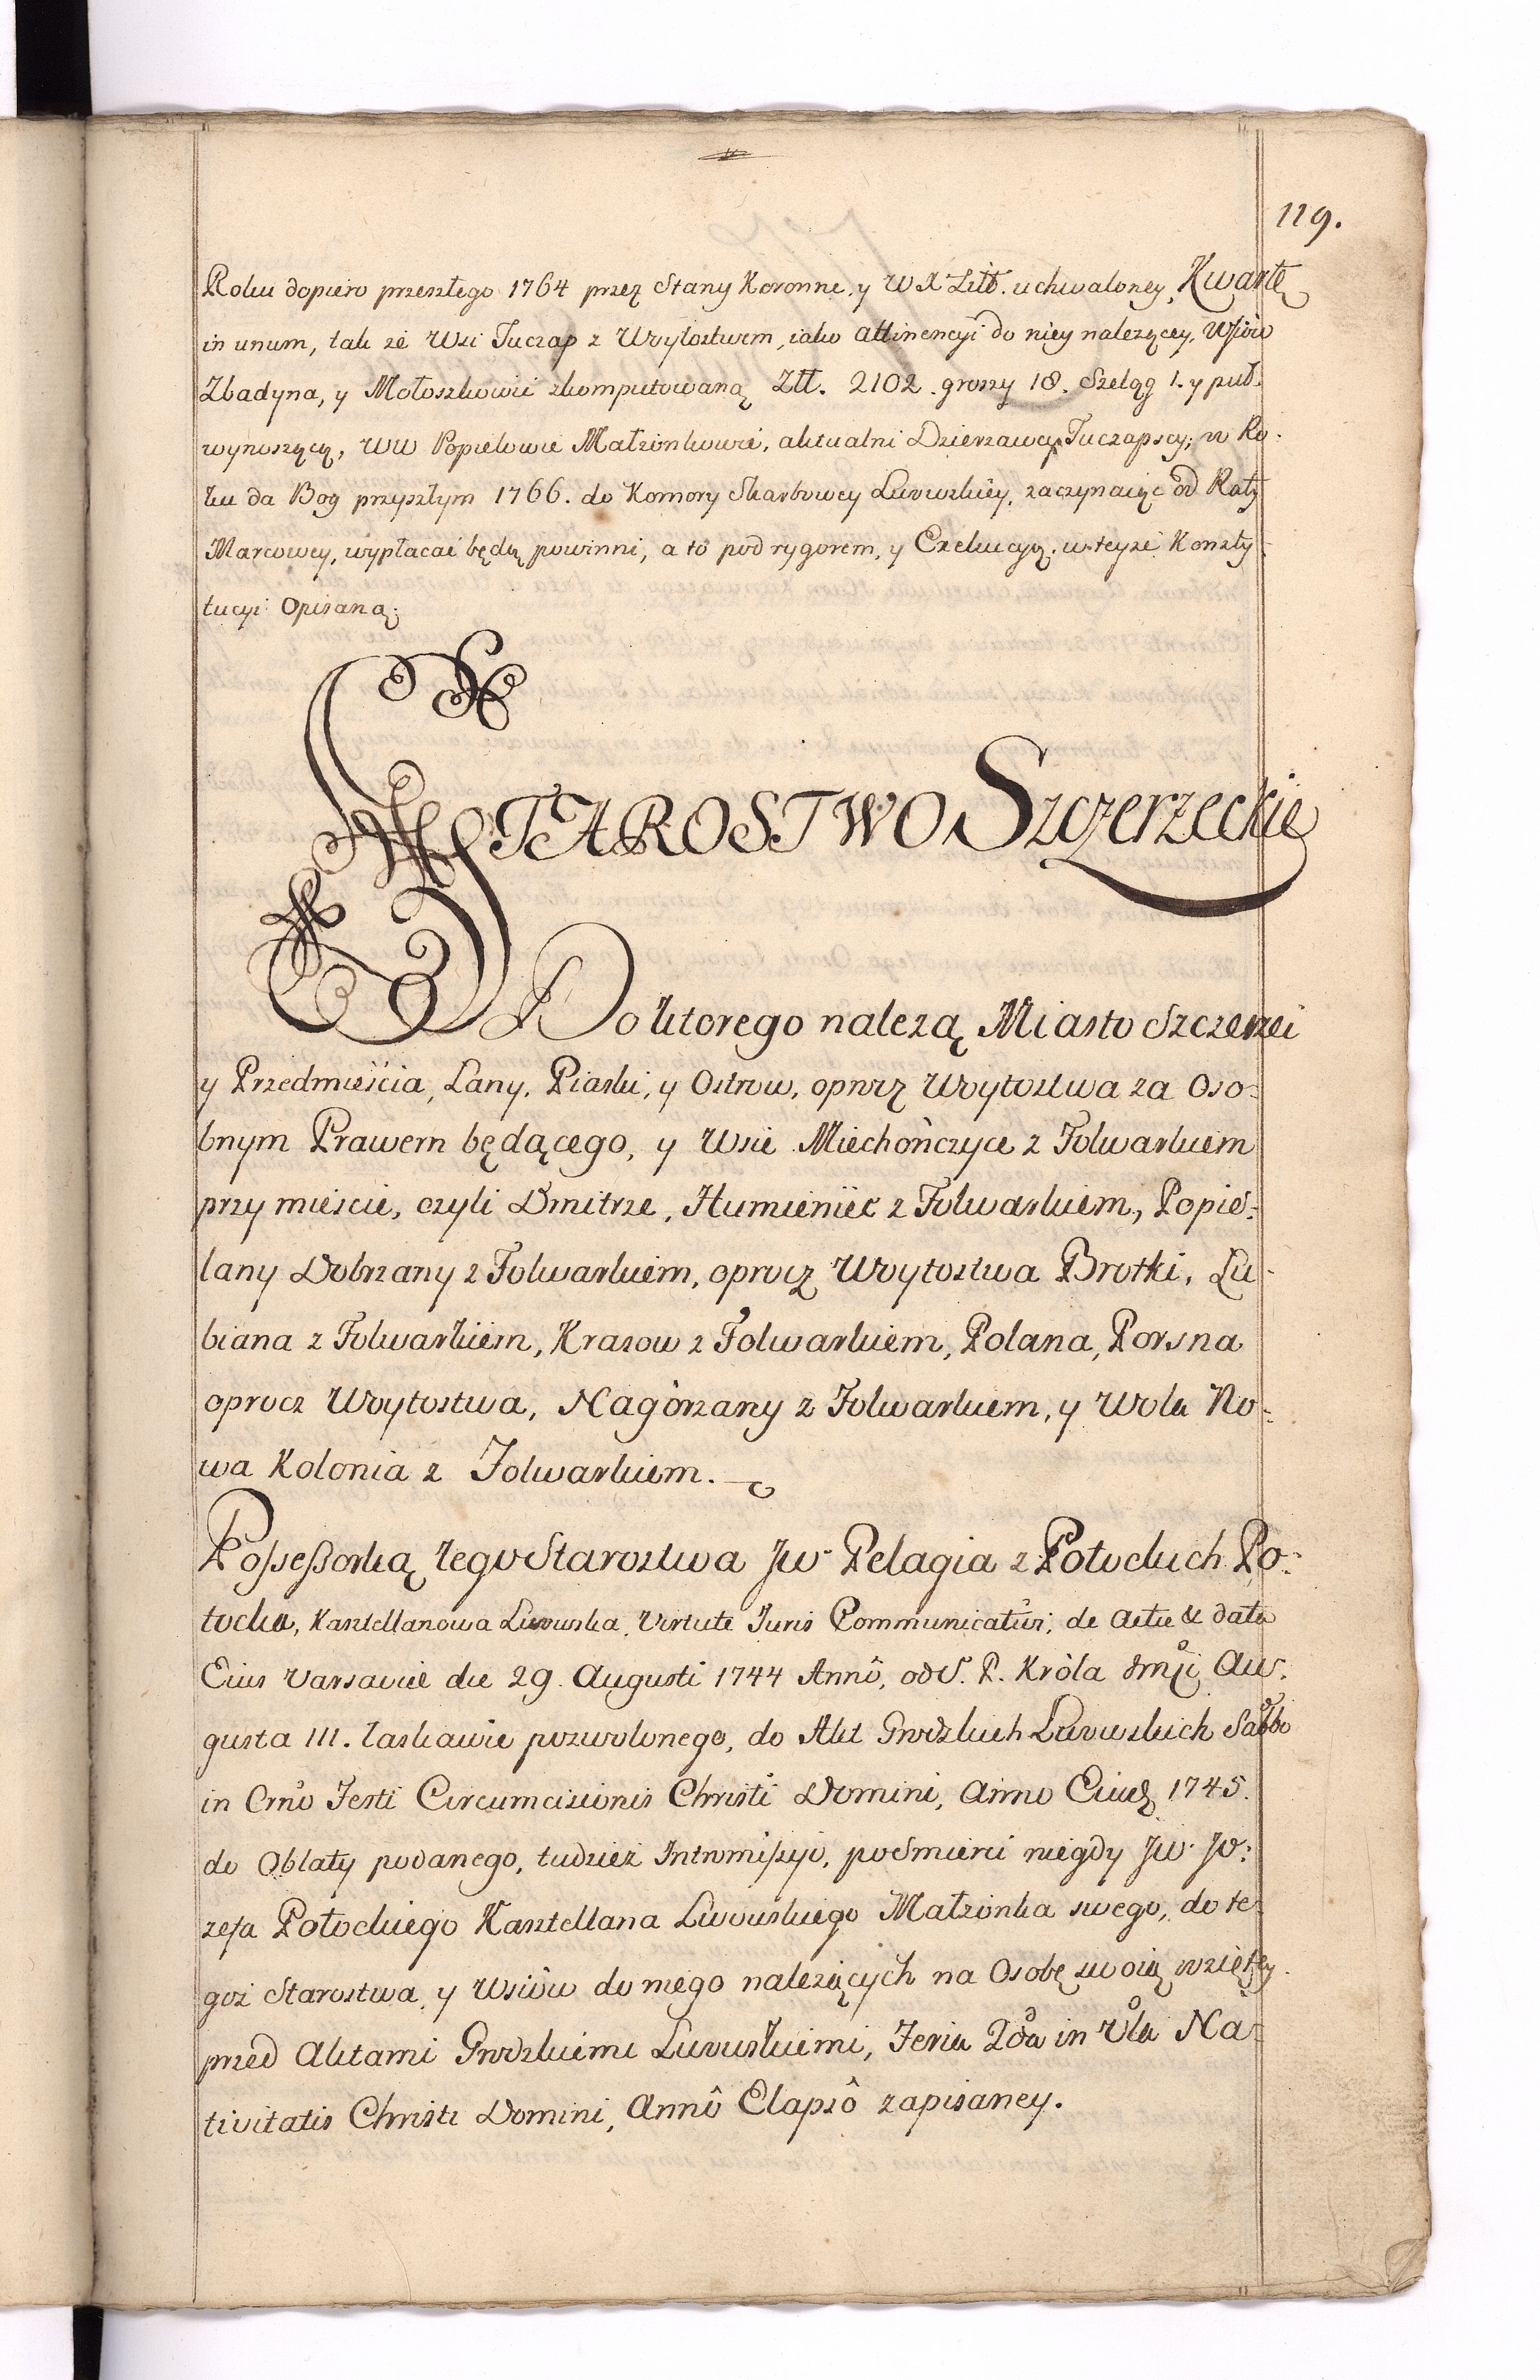 119.
Roku dopiero przeszłego 1764 przez Stany Koronne, y W X Litt. uchwaloney, Kwartę
in unum, tak ze Wsi Tuczap z Woytostwem, iako attinencyi do niey nalezącey, Wsiow
Zbadyna, y Mołoszkowic zkomputowaną Złł. 2102. groszy 18. Szeląg 1. y puł.
wynoszącą, WW Popielowie Małzonkowie, aktualni Dzierzawcy Tuczapscy, w Ro:
ku da Bog przyszłym 1766. do Komory Skarbowey Lwowskiey, zaczynaiąc od Raty
Marcowey, wypłacać będą powinni, a to pod rygorem, y Exekucyą, w teyze Konsty:
tucyi Opisaną.
STAROSTWO Szczerzeckie
Do ktorego nalezą Miasto Szczerzec
y Przedmieścia, Lany, Piaski, y Ostrow, oprocz Woytostwa za Oso:
bnym Prawem będącego, y Wsie Miechończyce z Folwarkiem
przy mieście, czyli Dmitrze, Humieniec z Folwarkiem, Popie:
lany Dobrzany z Folwarkiem, oprocz Woytostwa Brotki, Lu:
biana z Folwarkiem, Krasow z Folwarkiem, Polana, Porsna
oprocz Woytostwa, Nagórzany z Folwarkiem, y Wola No:
wa Kolonia z Folwarkiem.
Possessorką tego Starostwa Jw Pelagia z Potockich Po:
tocka, Kasztellanowa Lwowska, Virtute Juris Communicativi, de Actu & data
Eius Varsaviæ die 29. Augusti 1744 Annô, od S. P. Króla Jmći Au:
gusta III. łaskawie pozwolonego, do Akt Grodzkich Lwowskich Sabbo
in Crno Festi Circumcisionis Christi Domini, Anno Eiusd 1745.
do Oblaty podanego, tudziez Intromissyi, po Smierci niegdy Jw Jo:
zefa Potockiego Kasztellana Lwowskiego Małzonka swego, do te:
goz Starostwa, y Wsiow do niego nalezących na Osobę swoię wziętey
przed Aktami Grodzkiemi Lwowskiemi, Feria 2da in Vla Na:
tivitatis Christi Domini, Annô Elapsô zapisaney.